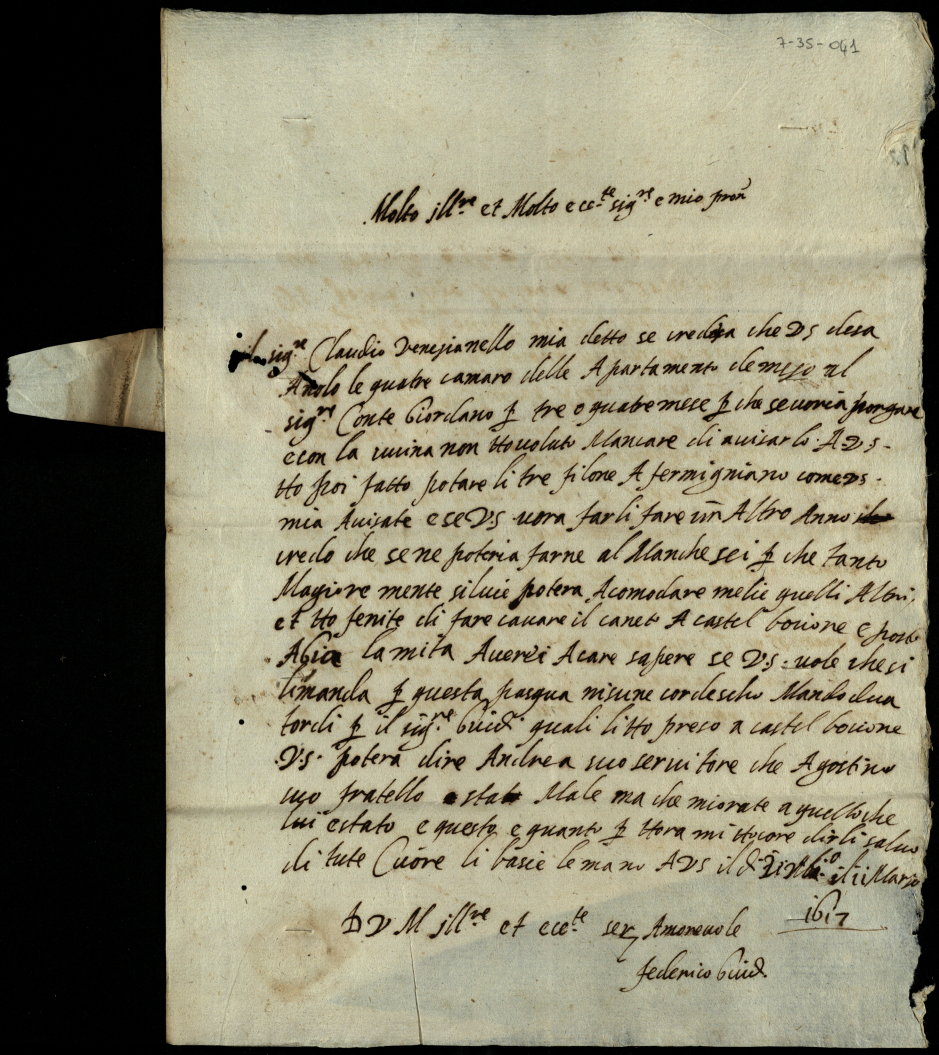 7-35-041
Molto jll.re et Molto ecc.te sig.re e mio pron
il sig.re Claudio Venezianello mia detto se credera che VS desa
Anolo le quatre camaro delle Apartamento demezo al
sig.re Conte Giordano p tre o quatre mese p che se voria porgare
e con la cucina non tto voluto Mancare di avisarlo A V.S.
tto poi fatto potare li tre filone A fermigniano come VS.
mia Avisate e se V.S vora farli fare un Altro Anno
credo che se ne poteria farne al Manche sei p che tanto
Magiore mente si lucie potera Acomodare melie quelli Altri
et tto fenite di fare cavare il caneto A castel bocione e
la mita Averei Acare sapere se V.S. vole che si
limanda p questa pasqua nisune cordescho Mando dua
tordi p il sig.re Guid. quali litto preso a castel bocione
V.S. potera dire Andrea suo servitore che Agostino
suo fratello e stato Male ma che miorate a quello che
lui estato e questo e quanto p ttora mi ttocore dirli salvo
di tute Cuore li bascie le mano A VS il di Marzo
1617
D V M jll.re et ecc.te ser. Amorevole
federico Guid.